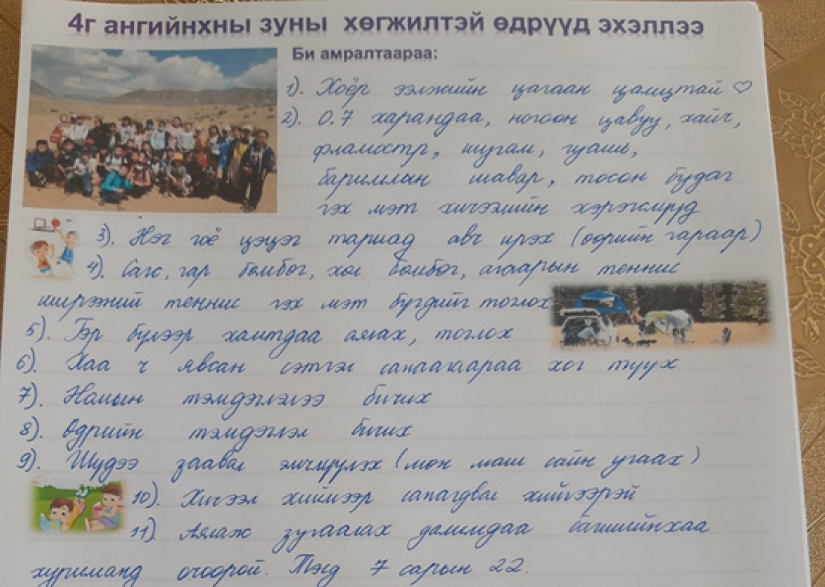 4г ангийнхны зуны хөгжилтэй өдрүүд эхэллээ
Би амралтаараа:
1). Хоёр ээлжийн цагаан цамцтай ♡
2). 0.7 харандаа, ногоон цавуу, хайч,
фламастр, шугам, гуашь,
баримлын шавар, тосон будаг
гэх мэт хичээлийн хэрэгслүүд
3). Нэг гоё цэцэг тариад авч ирэх (өөрийн гараар)
4). Сагс, гар бөмбөг, хөл бөмбөг, агаарын теннис
ширээний теннис гэх мэт бүгдийг тоглох
5). Гэр бүлээр хамтдаа аялах, тоглох
6). Хаа ч явсан сэтгэл санаагаараа хог түүх
7). Номын тэмдэглэлээ бичих
8). Өдрийн тэмдэглэл бичих
9). Шүдээ заавал эмчлүүлэх (мөн маш сайн угаах)
10). Хичээл хиймээр санагдвал хийгээрэй
11). Аялаж зугаалах далимдаа багшийнхаа
хуриманд очоорой. Тэгд 7 сарын 22.